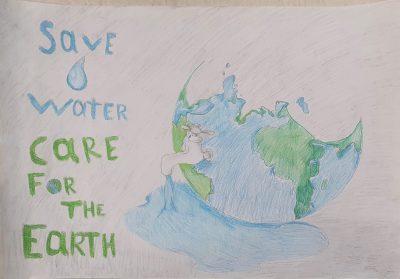 SAVE
WATER
CARE
FOR
THE
EARTH